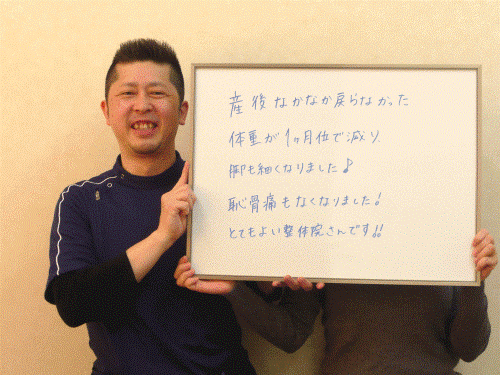 産後なかなか戻らなかった
体重が1ヶ月位で減り、
脚も細くなりました♪
恥骨痛もなくなりました!
とてもよい整体院さんです!!